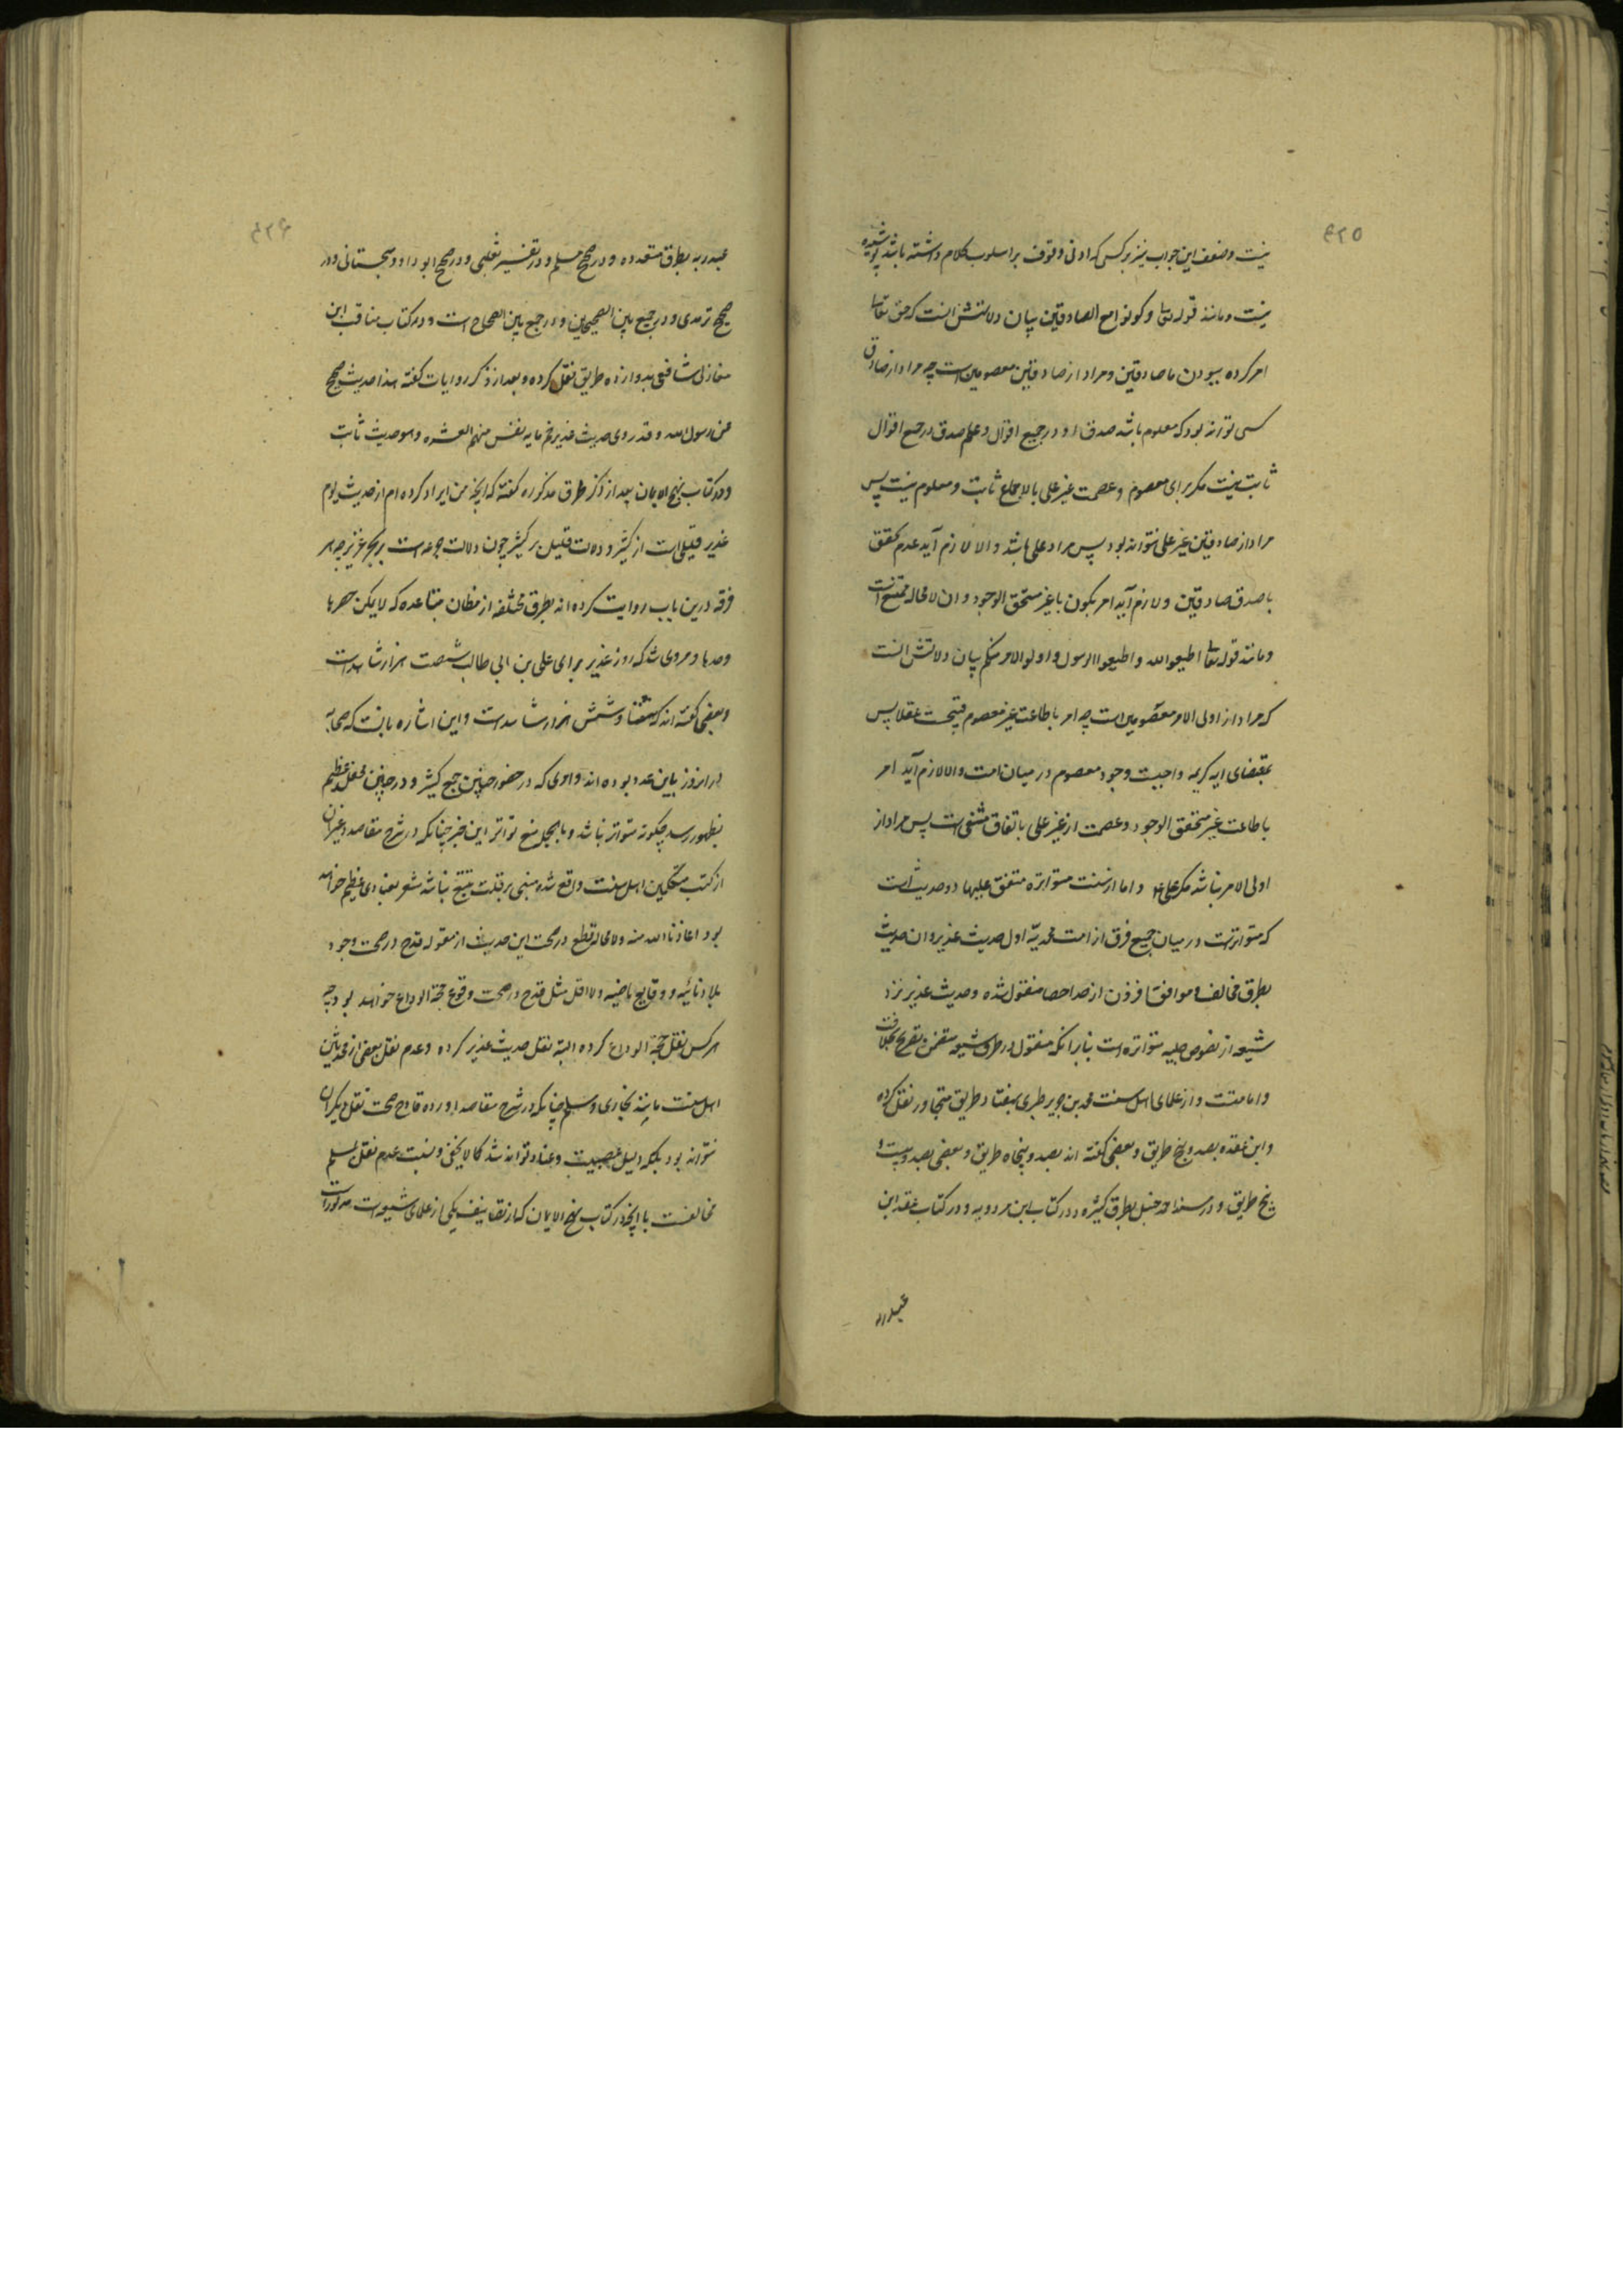 ۴۲۵
نیست و ضعف این جواب نیز بر کسی که ادنی وقوف بر اسلوب کلام داشته باشد پوشیده
نیست و مانند قوله تعالی و کونوا مع الصادقین بیان دلالتش انست که حق تعالی
امر کرده ببودن با صادقین و مراد از صادقین معصومین است چه مراد از صادق
کسی تواند بود که معلوم باشد صدق او در جمیع اقوال و علم صدق در جمیع اقوال
ثابت نیست مکر برای معصوم و عصمت غیر علی بالاجماع ثابت و معلوم نیست پس
مراد از صادقین غیر علی نتواند بود پس مراد علی باشد و الا لازم آید عدم تحقق
با صدق صادقین و لازم آید امر بکون با غیر متحقق الوجود و ان لا محاله ممتنع است
و مانند قوله تعالی اطیعوا الله و اطیعوا الرسول و اولو الامر منکم بیان دلالتش انست
که مراد از اولی الامر معصومین است چه امر باطاعت غیر معصوم قبیحست عقلا پس
بمقتضای ایه کریمه واجبست وجود معصوم در میان امت و الا لازم آید امر
باطاعت غیر متحقق الوجود و عصمت از غیر علی باتفاق منتفی است پس مراد از
اولی الامر نباشد مکر علی ع و اما از سنت متواتره متفق علیها دو حدیث است
که متواترست در میان جمیع فرق از امت محمدیّه اول حدیث غدیر و ان حدیث
بطرق مخالف و موافق افزون از حد احصا منقول شده و حدیث غدیر نزد
شیعه از نصوص جلیه متواتره است بنا بر انکه منقول در طرق شیعه متضمن تصریح بخلافت
و امامتست و از علمای اهل سنت محمد بن جریر طبری بهفتاد طریق متجاوز نقل کرده
و ابن عقده بصد و پنج طریق و بعضی کفته اند بصد و پنجاه طریق و بعضی بصد و بیست و
پنج طریق و در مسند احمد حنبل بطرق کثیره و در کتاب ابن مردویه و در کتاب عقد ابن
عبدربه
۴۲۶
عبدربه بطرق متعدده و در صحیح مسلم و در تفسیر ثعلبی و در صحیح ابو داود سجستانی و در
صحیح ترمدی و در جمع بین الصحیحین و در جمع بین الصحاح است و در کتاب مناقب ابن
مغازلی شافعی بدوازده طریق نقل کرده و بعد از ذکر روایات کفته هذا حدیث صحیح
عن رسول الله و قد روی حدیث غدیر خم مایه نفس منهم العشره و هو حدیث ثابت
و در کتاب نهج الایمان بعد از ذکر طرق مذکوره کفته که انچه من ایراد کرده ام از حدیث یوم
غدیر قلیلی است از کثیر و دلالت قلیل بر کثیر چون دلالت جرعه است بر بحر غزیر چه هر
فرقه درین باب روایت کرده اند بطرق مختلفه از مظان متباعده که لا یمکن حصرها
وعدها و مروی شد که روز غدیر برای علی بن ابی طالب شصت هزار شاهد است
و بعضی کفته اند که هشتاد و شش هزار شاهد است و این اشاره بانست که صحابه
در انروز باین عدد بوده اند و امری که در حضور چنین جمع کثیر و در چنین محفل عظیم
بظهور رسد چکونه متواتر نباشد و بالجمله منع تواتر این خبر چنانکه در شرح مقاصد و غیر ان
از کتب متکلمین اهل سنت واقع شده مبنی بر قلت تتبع نباشد مشعر بعنادی عظیم خواهد
بود اعاذنا الله منه و لا محاله قطع در صحت این حدیث از مقوله قدح در صحت وجود
بلاد نائیه و وقایع ماضیه و لا اقل مثل قدح در صحت وقوع حجة الوداع خواهد بود چه
هر کس نقل حجة الوداع کرده البته نقل حدیث غدیر کرده و عدم نقل بعضی از محدثین
اهل سنت مانند بخاری و مسلم چنانکه در شرح مقاصد اورده قادح صحت نقل دیکران
نتواند بود بلکه دلیل عصبیت و عناد تواند شد کما لا یخفی و نسبت عدم نقل بمسلم
مخالفست با انچه در کتاب نهج الایمان که از تصانیف یکی از علمای شیعه است مذکور است